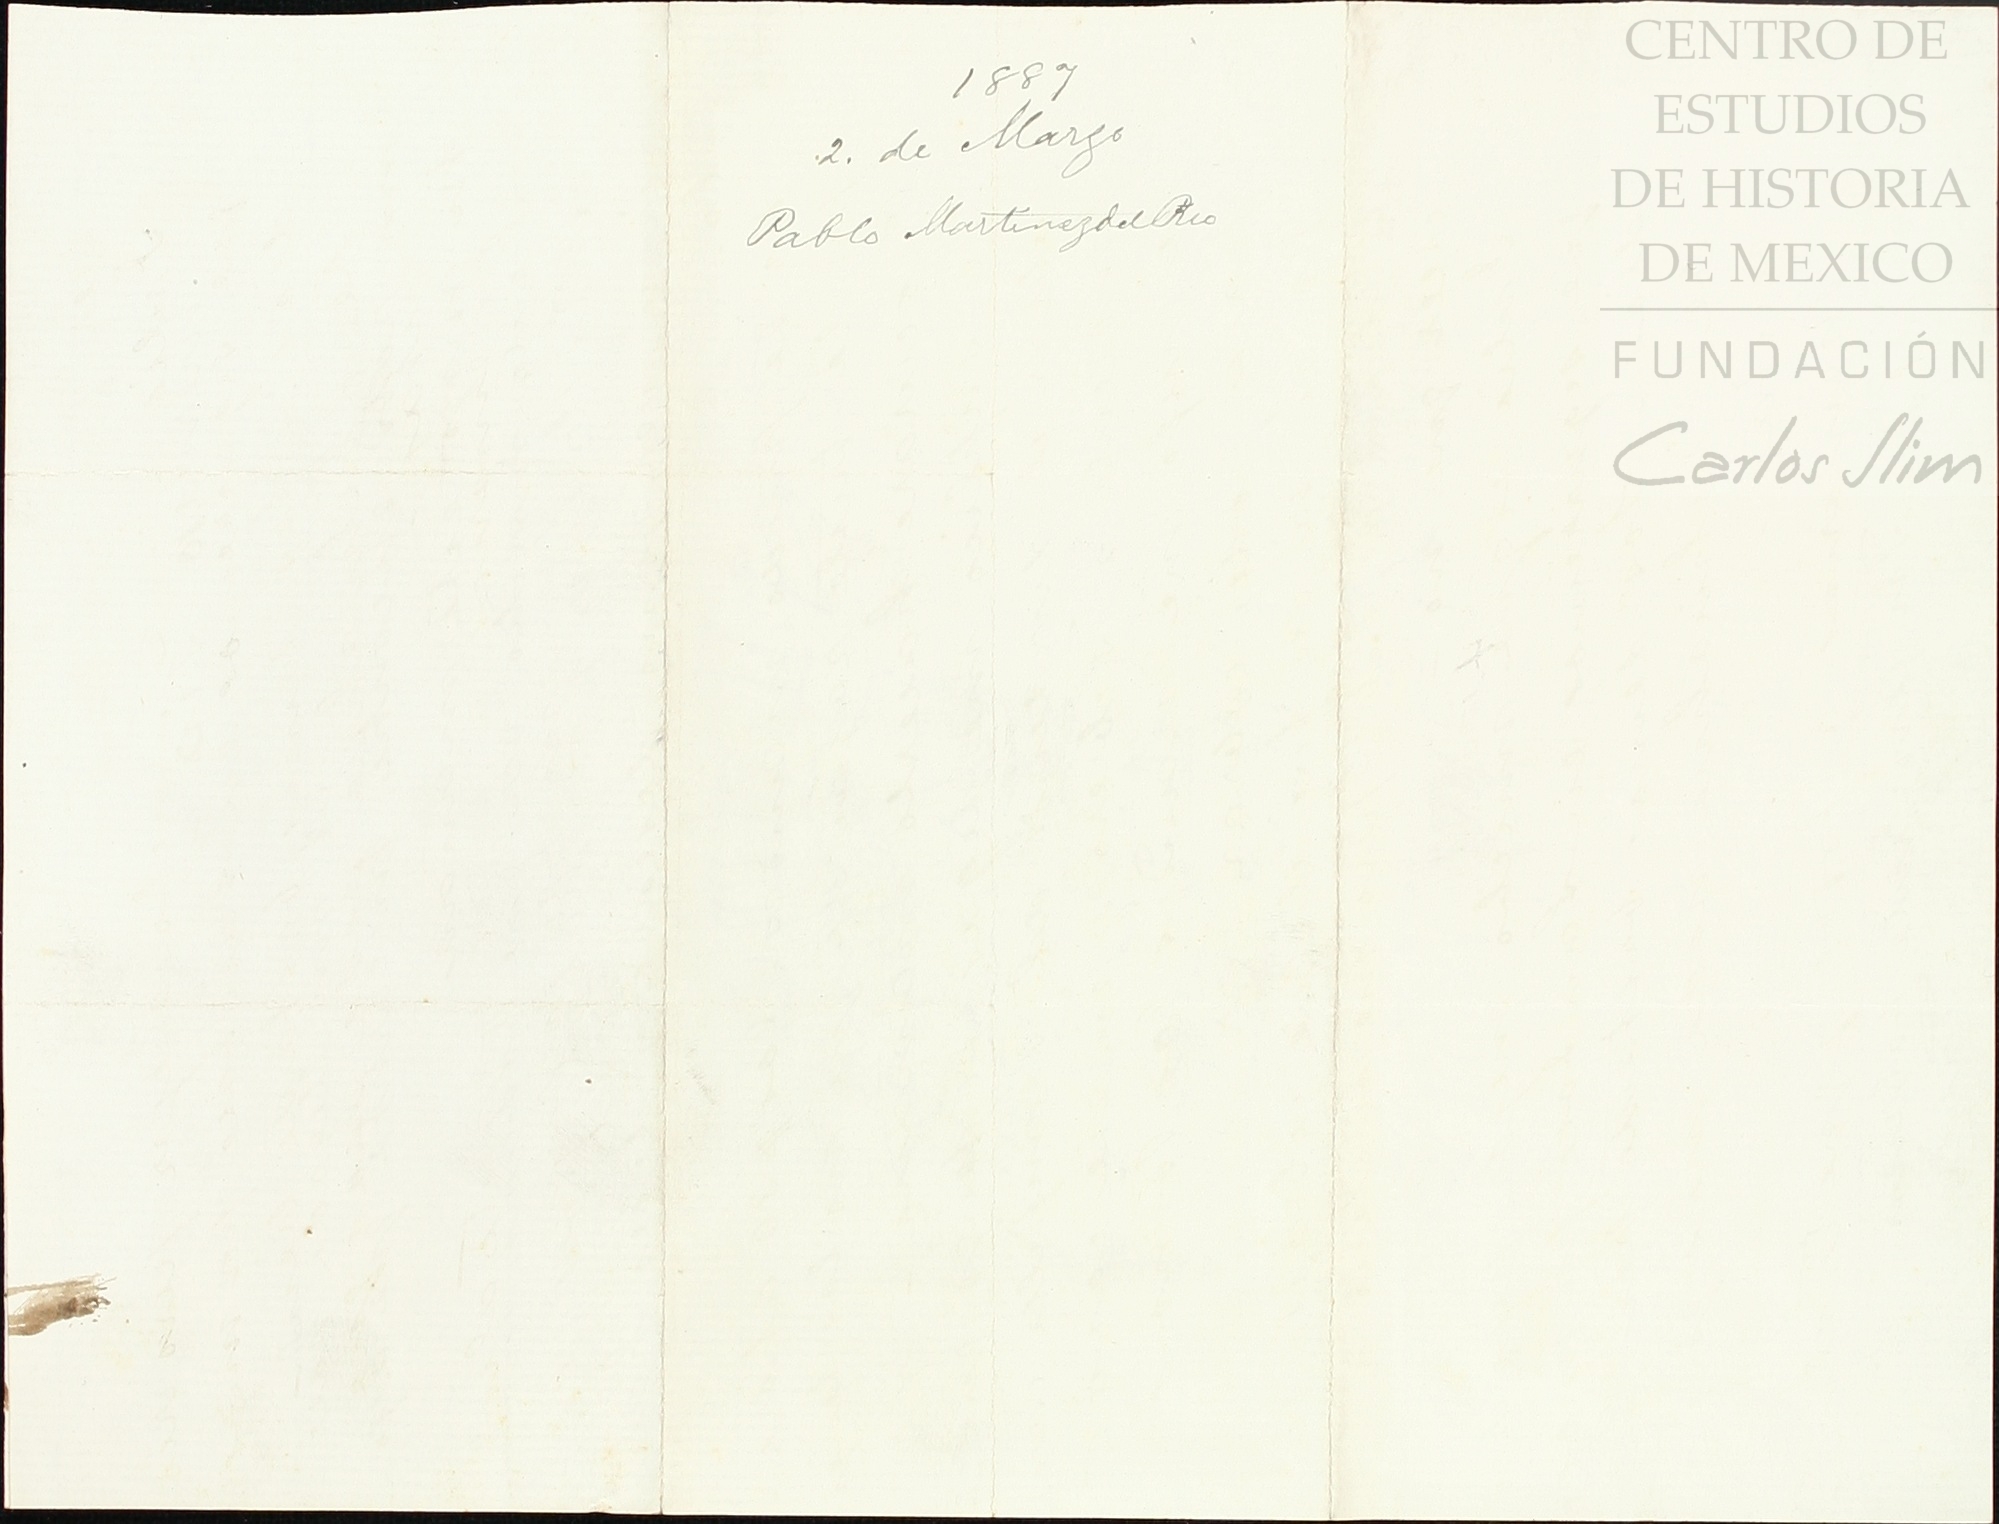 1887
2. de Marzo
Pablo Martinez del Rio
CENTRO DE
ESTUDIOS
DE HISTORIA
DE MEXICO
FUNDACIÓN
Carlos Slim